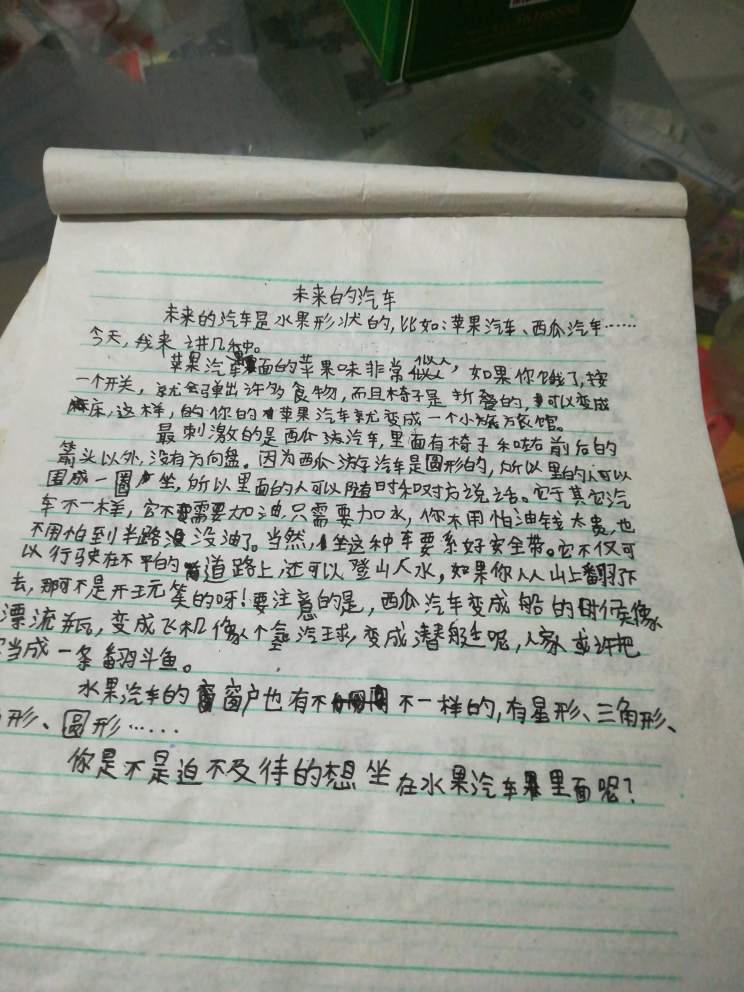 未来的汽车
未来的汽车是水果形状的,比如:苹果汽车、西瓜汽车……
今天,我来讲几种。
苹果汽车面的苹果味非常似人,如果你饿了,按
一个开关,就会弹出许多食物,而且椅子是折叠的,可以变成
床,这样,的你的苹果汽车就变成一个小旅馆。
最刺激的是西瓜汽车,里面有椅子和前后的
箭头以外,没有方向盘。因为西瓜汽车是圆形的,所以里的人可以
围成一圈坐,所以里面的人可以随时和对方说话。它于其它汽
车不一样,它不需要加油只需要加水,你不用怕油钱太贵,也
不用怕到半路没油了。当然,坐这种车要系好安全带。它不仅可
以行驶在不平的道路上,还可以登山入水,如果你从山上翻了下
去,那可不是开玩笑的呀!要注意的是,西瓜汽车变成船的时候像
漂流瓶,变成飞机像个氢汽球,变成潜艇呢,人家或许把
当成一条翻斗鱼。
水果汽车的窗户也有不一样的,有星形、三角形、
形、圆形……
你是不是迫不及待的想坐在水果汽车里面呢?